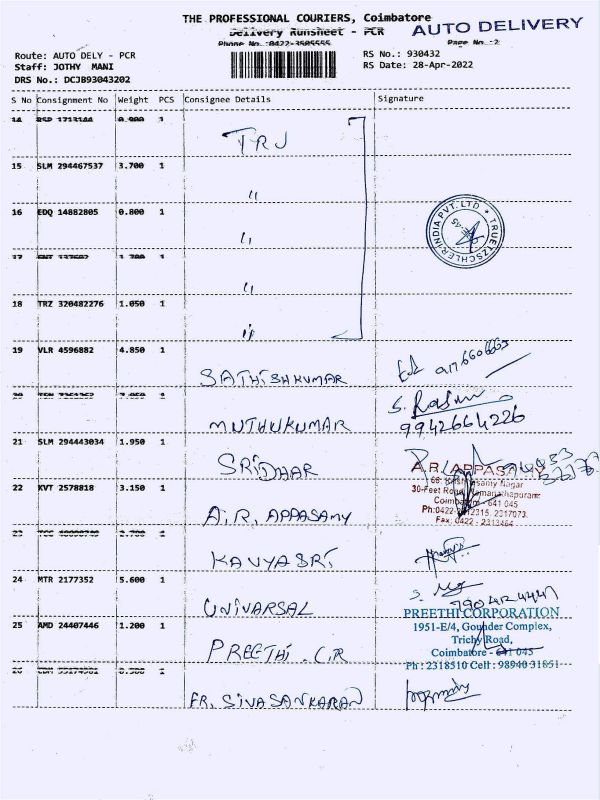 THE PROFESSIONAL COURIERS, Coimbatore
Delivery Runsheet - PCR
AUTO DELIVERY
Phone No.:0422-3505555
Page No.:2
Route: AUTO DELY - PCR
RS No.: 930432
Staff: JOTHY MANI
RS Date: 28-Apr-2022
DRS No.: DCJB93043202
S No Consignment No Weight PCS Consignee Details Signature
14 1
TRJ
15 SLM 294467537 3.700 1
"
16 EDQ 14882805 0.800 1
"
TRUETZSCHLER INDIA PVT. LTD
17 1
"
18 TRZ 320482276 1.050 1
"
19 VLR 4596882 4.850 1
SATHISHKUMAR
20 1
MUTHUKUMAR
9942664226
21 SLM 294443034 1.950 1
SRIDHAR
A.R. APPASAMY
22 KVT 2578818 3.150 1
30-Feet Road, Ramanathapuram
Coimbatore - 641 045
Ph:0422-2312315. 2317073.
Fax: 0422 - 2313464
A.R. APPASAMY
23 1
KAVYASRI
24 MTR 2177352 5.600 1
UNIVARSAL
PREETHI CORPORATION
1951-E/4, Gounder Complex,
Trichy Road,
Coimbatore - 641 045
Ph : 2318510 Cell : 98940 31851
25 AMD 24407446 1.200 1
PREETHI. C.R
26 1
ER. SIVASANKARAN